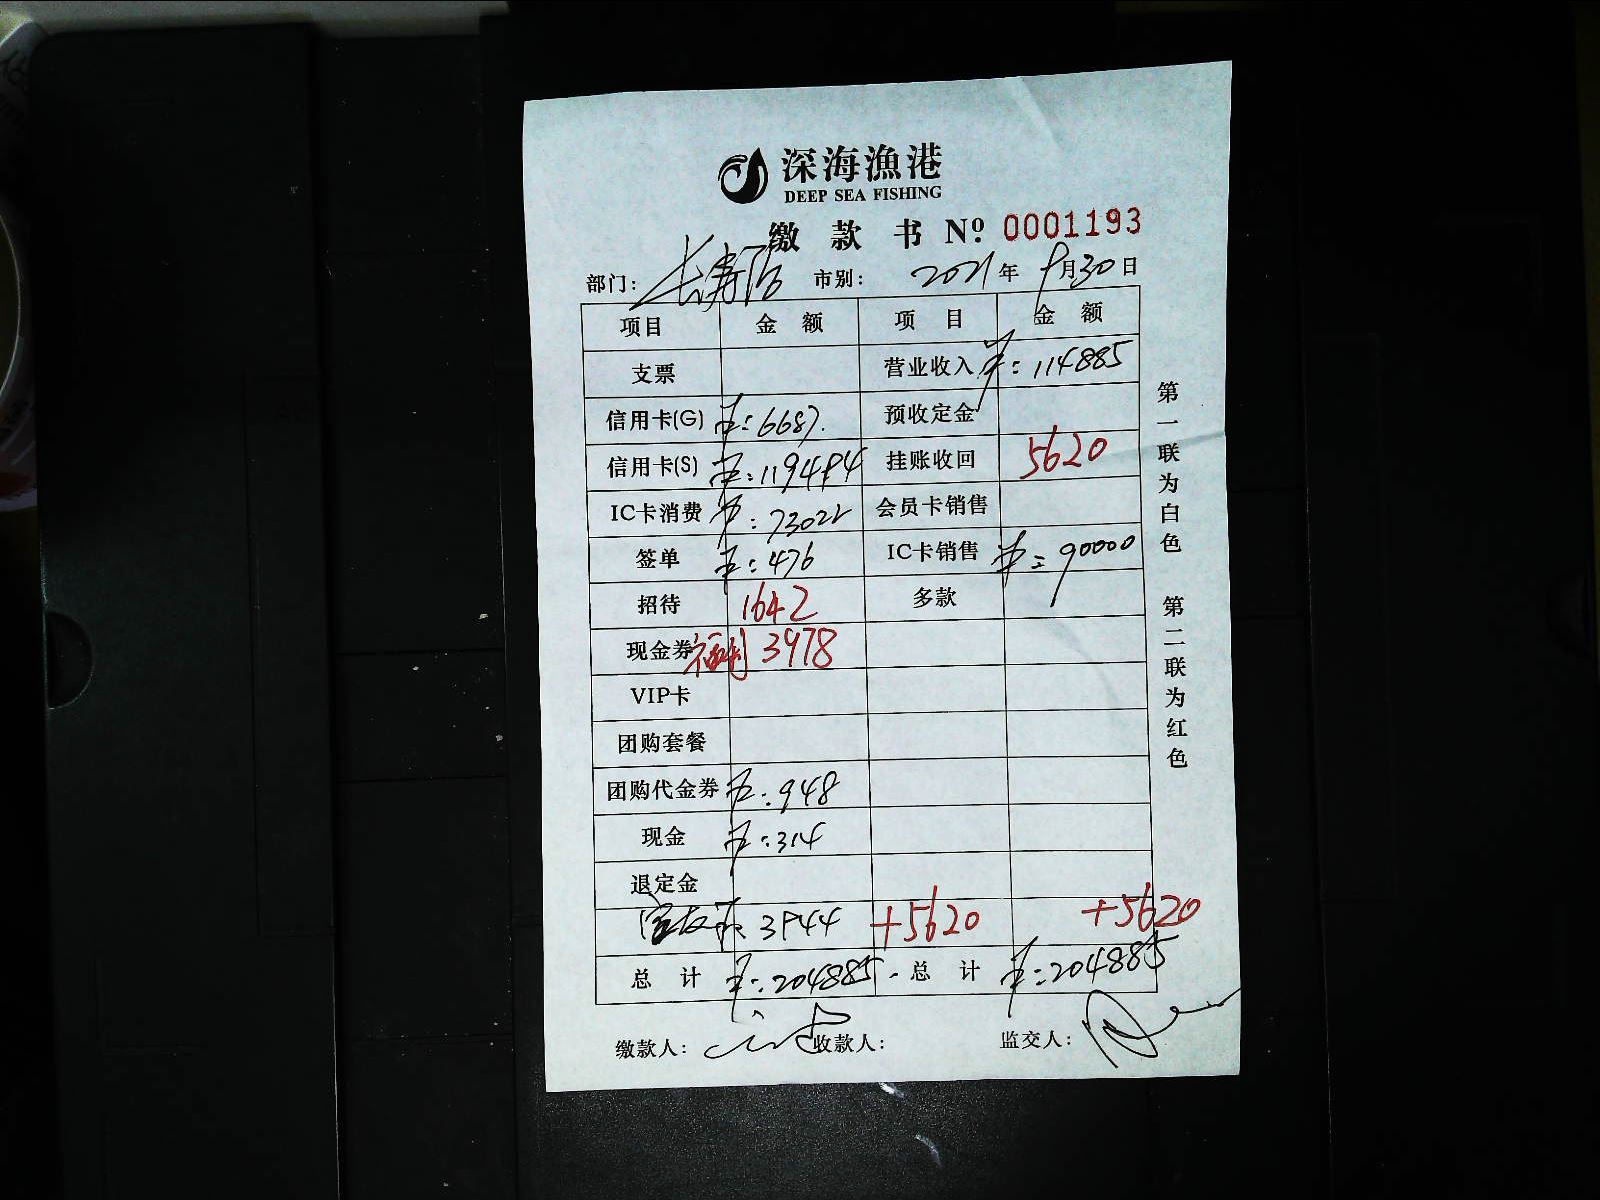 深海漁港
DEEP SEA FISHING
缴款书 Nº 0001193
部门： 长寿 市别： 2021年9月30日
项目 金额 项目 金额
支票 营业收入 ¥:114885
信用卡(G) ¥:6687. 预收定金
信用卡(S) ¥:119494 挂账收回 5620
IC卡消费 ¥:73022 会员卡销售
签单 ¥:476 IC卡销售 ¥:90000
招待 1642 多款
现金券 福利 3978
VIP卡
团购套餐
团购代金券 ¥:948
现金 ¥:314
退定金
3944 +5620 +5620
总计 ¥:204885- 总计 ¥:204885
缴款人： 收款人： 监交人：
第一联为白色 第二联为红色